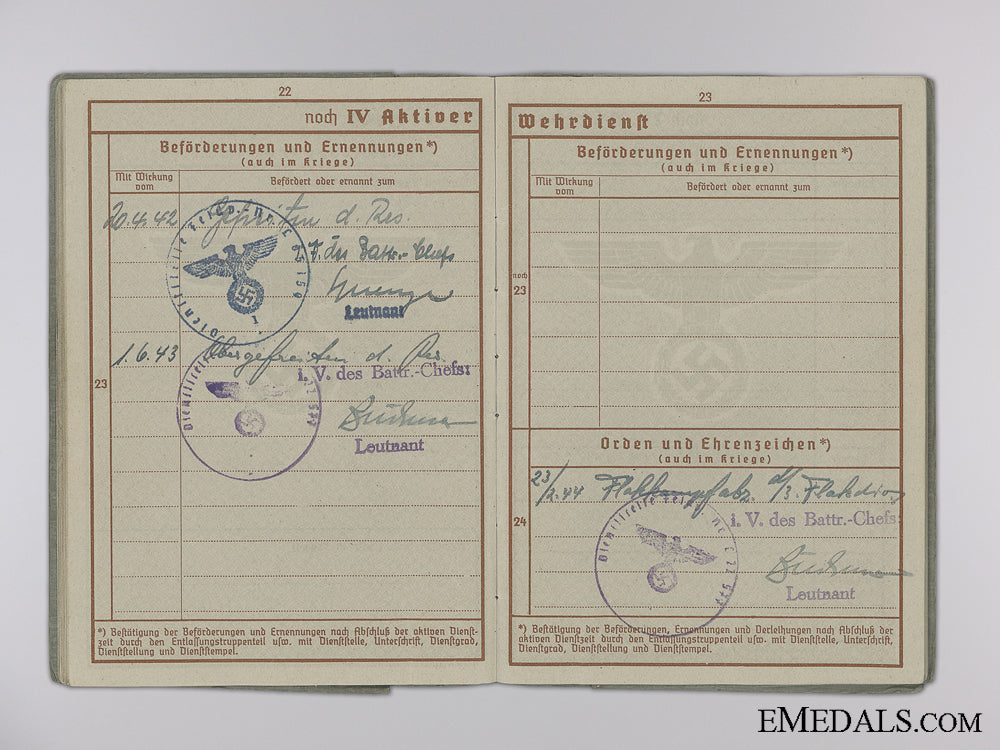 22
noch IV Aktiver
Beförderungen und Ernennungen*)
(auch im Kriege)
Mit Wirkung vom
Befördert oder ernannt zum
20.4.42 Gefreiten d. Res.
Battr.-Chefs
Leutnant
Dienststelle Feldp.-Nr.
1.6.43 Obergefreiten d. Res.
i. V. des Battr.-Chefs:
Leutnant
Dienststelle
23
*) Bestätigung der Beförderungen und Ernennungen nach Abschluß der aktiven Dienst-
zeit durch den Entlassungstruppenteil usw. mit Dienststelle, Unterschrift, Dienstgrad,
Dienststellung und Dienststempel.
23
Wehrdienst
Beförderungen und Ernennungen*)
(auch im Kriege)
Mit Wirkung vom
Befördert oder ernannt zum
noch
23
Orden und Ehrenzeichen*)
(auch im Kriege)
23/2.44 Flakkampfabz. Flakdiv
i. V. des Battr.-Chefs:
Leutnant
Dienststelle Feldp. Nr.
24
*) Bestätigung der Beförderungen, Ernennungen und Verleihungen nach Abschluß der
aktiven Dienstzeit durch den Entlassungstruppenteil usw. mit Dienststelle, Unterschrift,
Dienstgrad, Dienststellung und Dienststempel.
EMEDALS.COM